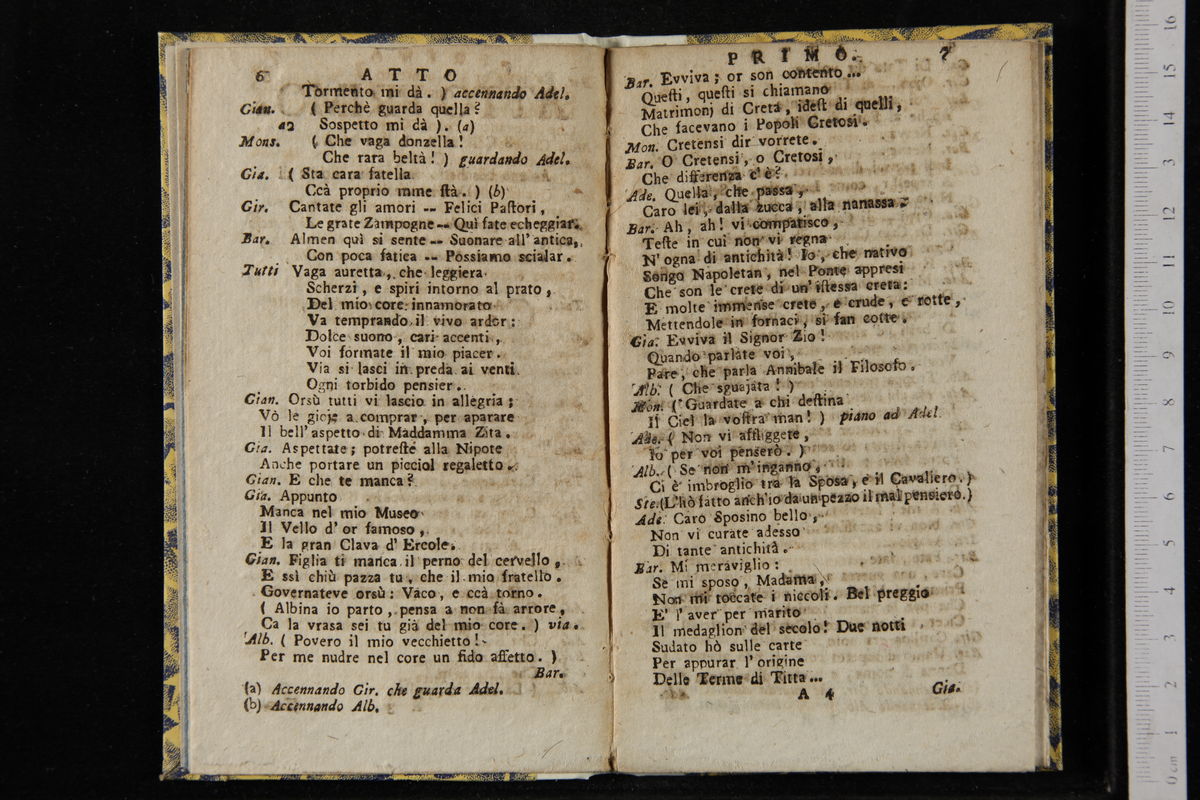 6 ATTO
Tormento mi dà. ) accennando Adel.
Gian. ( Perchè guarda quella?
a2 Sospetto mi dà ). (a)
Mons. ( Che vaga donzella!
Che rara beltà! ) guardando Adel.
Gia. ( Sta cara fatella
Ccà proprio mme ſtà. ) (b)
Gir. Cantate gli amori -- Felici Paſtori,
Le grate Zampogne -- Quì fate echeggiar.
Bar. Almen quì si sente -- Suonare all'antica,
Con poca fatica -- Possiamo scialar.
Tutti Vaga auretta, che leggiera
Scherzi, e spiri intorno al prato,
Del mio core innamorato
Va temprando il vivo ardor:
Dolce suono, cari accenti,
Voi formate il mio piacer.
Via si lasci in preda ai venti
Ogni torbido pensier.
Gian. Orsù tutti vi lascio in allegria;
Vò le gioje a comprar, per aparare
Il bell'aspetto di Maddamma Zita.
Gia. Aspettate; potreſte alla Nipote
Anche portare un picciol regaletto.
Gian. E che te manca?
Gia. Appunto
Manca nel mio Museo
Il Vello d'or famoso,
E la gran Clava d'Ercole.
Gian. Figlia ti manca il perno del cervello,
E ssì chiù pazza tu, che il mio fratello.
Governateve orsù: Vaco, e ccà torno.
( Albina io parto, pensa a non fà arrore,
Ca la vrasa sei tu già del mio core. ) via.
Alb. ( Povero il mio vecchietto!
Per me nudre nel core un fido affetto. )
Bar.
(a) Accennando Gir. che guarda Adel.
(b) Accennando Alb.
PRIMO. 7
Bar. Evviva; or son contento...
Queſti, queſti si chiamano
Matrimonj di Creta, ideſt di quelli,
Che facevano i Popoli Cretosi.
Mon. Cretensi dir vorrete.
Bar. O Cretensi, o Cretosi,
Che differenza c'è?
Ade. Quella, che passa,
Caro lei, dalla zucca, alla nanassa.
Bar. Ah, ah! vi compatisco,
Teſte in cui non vi regna
N'ogna di antichità! Io, che nativo
Songo Napoletan, nel Ponte appresi
Che son le crete di un'iſtessa creta:
E molte immense crete, e crude, e rotte,
Mettendole in fornaci, si fan cotte.
Gia. Evviva il Signor Zio!
Quando parlate voi,
Pare, che parla Annibale il Filosofo.
Alb. ( Che sguajata! )
Mon. ( Guardate a chi deſtina
Il Ciel la voſtra man! ) piano ad Adel.
Ade. ( Non vi affliggete,
Io per voi penserò. )
Alb. ( Se non m'inganno,
Ci è imbroglio tra la Sposa, e il Cavaliero. )
Ste. (L'hò fatto anch'io da un pezzo il mal pensiero.)
Ade. Caro Sposino bello,
Non vi curate adesso
Di tante antichità.
Bar. Mi meraviglio:
Se mi sposo, Madama,
Non mi toccate i niccoli. Bel preggio
E' l'aver per marito
Il medaglion del secolo! Due notti
Sudato hò sulle carte
Per appurar l'origine
Delle Terme di Titta...
A 4 Gia.